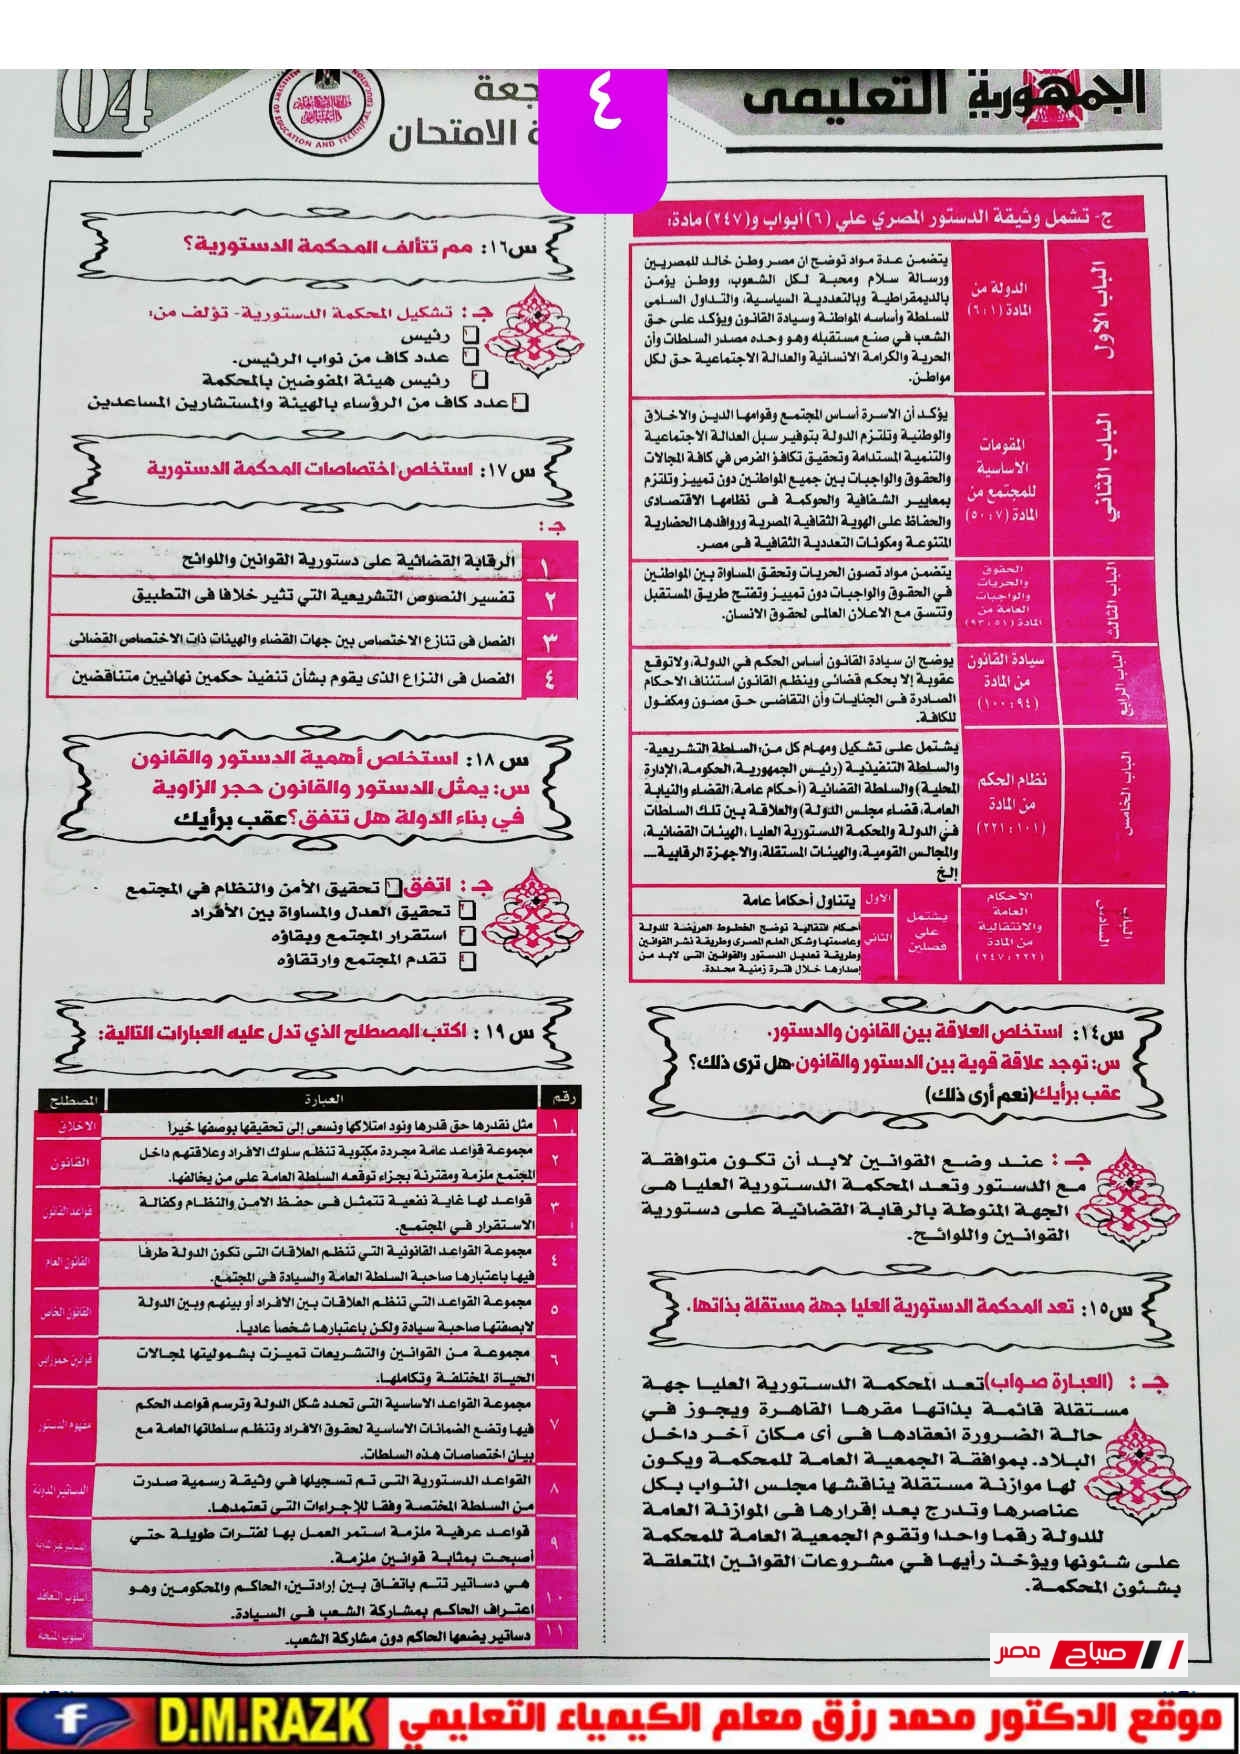 04
جعة
ة الامتحان
٤
الجمهورية التعليمى
ج- تشمل وثيقة الدستور المصري علي (٦) أبواب و(٢٤٧) مادة:
الباب الأول
الدولة من
المادة (٦:١)
يتضمن عدة مواد توضح ان مصر وطن خالد للمصريين
ورسالة سلام ومحبة لكل الشعوب، ووطن يؤمن
بالديمقراطية وبالتعددية السياسية، والتداول السلمى
للسلطة وأساسه المواطنة وسيادة القانون ويؤكد على حق
الشعب في صنع مستقبله وهو وحده مصدر السلطات وأن
الحرية والكرامة الانسانية والعدالة الاجتماعية حق لكل
مواطن.
الباب الثاني
المقومات
الاساسية
للمجتمع من
المادة (٥٠:٧)
يؤكد أن الاسرة أساس المجتمع وقوامها الدين والاخلاق
والوطنية وتلتزم الدولة بتوفير سبل العدالة الاجتماعية
والتنمية المستدامة وتحقيق تكافؤ الفرص في كافة المجالات
والحقوق والواجبات بين جميع المواطنين دون تمييز وتلتزم
بمعايير الشفافية والحوكمة فى نظامها الاقتصادى
والحفاظ على الهوية الثقافية المصرية وروافدها الحضارية
المتنوعة ومكونات التعددية الثقافية فى مصر.
الباب الثالث
الحقوق
والحريات
والواجبات
العامة من
المادة (٩٣:٥١)
يتضمن مواد تصون الحريات وتحقق المساواة بين المواطنين
في الحقوق والواجبات دون تمييز وتفتح طريق المستقبل
وتتسق مع الاعلان العالمى لحقوق الانسان.
الباب الرابع
سيادة القانون
من المادة
(١٠٠:٩٤)
يوضح ان سيادة القانون أساس الحكم في الدولة، ولا توقع
عقوبة إلا بحكم قضائى وينظم القانون استئناف الاحكام
الصادرة فى الجنايات وأن التقاضى حق مصون ومكفول
للكافة.
الباب الخامس
نظام الحكم
من المادة
(٢٢١:١٠١)
يشتمل على تشكيل ومهام كل من: السلطة التشريعية-
والسلطة التنفيذية (رئيس الجمهورية، الحكومة، الإدارة
المحلية) والسلطة القضائية (أحكام عامة، القضاء والنيابة
العامة، قضاء مجلس الدولة) والعلاقة بين تلك السلطات
فى الدولة والمحكمة الدستورية العليا، الهيئات القضائية،
والمجالس القومية، والهيئات المستقلة، والاجهزة الرقابية....
إلخ
الباب السادس
الاحكام
العامة
والانتقالية
من المادة
(٢٤٧:٢٢٢)
يشتمل
علي
فصلين
الأول
يتناول أحكاماً عامة
الثاني
أحكام انتقالية توضح الخطوط العريضة للدولة
وعاصمتها وشكل العلم المصرى وطريقة نشر القوانين
وطريقة تعديل الدستور والقوانين التى لابد من
إصدارها خلال فترة زمنية محددة.
س١٤: استخلص العلاقة بين القانون والدستور.
س: توجد علاقة قوية بين الدستور والقانون. هل ترى ذلك؟
عقب برأيك (نعم أرى ذلك)
جـ : عند وضع القوانين لابد أن تكون متوافقة
مع الدستور وتعد المحكمة الدستورية العليا هى
الجهة المنوطة بالرقابة القضائية على دستورية
القوانين واللوائح.
س١٥: تعد المحكمة الدستورية العليا جهة مستقلة بذاتها.
جـ : (العبارة صواب) تعد المحكمة الدستورية العليا جهة
مستقلة قائمة بذاتها مقرها القاهرة ويجوز في
حالة الضرورة انعقادها فى أى مكان آخر داخل
البلاد. بموافقة الجمعية العامة للمحكمة ويكون
لها موازنة مستقلة يناقشها مجلس النواب بكل
عناصرها وتدرج بعد إقرارها فى الموازنة العامة
للدولة رقما واحدا وتقوم الجمعية العامة للمحكمة
على شئونها ويؤخذ رأيها في مشروعات القوانين المتعلقة
بشئون المحكمة.
س١٦: مم تتألف المحكمة الدستورية؟
جـ : تشكيل المحكمة الدستورية- تؤلف من:
١ رئيس
٢ عدد كاف من نواب الرئيس.
٣ رئيس هيئة المفوضين بالمحكمة
٤ عدد كاف من الرؤساء بالهيئة والمستشارين المساعدين
س١٧: استخلص اختصاصات المحكمة الدستورية
جـ :
١ الرقابة القضائية على دستورية القوانين واللوائح
٢ تفسير النصوص التشريعية التي تثير خلافا فى التطبيق
٣ الفصل فى تنازع الاختصاص بين جهات القضاء والهيئات ذات الاختصاص القضائى
٤ الفصل فى النزاع الذى يقوم بشأن تنفيذ حكمين نهائيين متناقضين
س١٨: استخلص أهمية الدستور والقانون
س: يمثل الدستور والقانون حجر الزاوية
في بناء الدولة هل تتفق؟ عقب برأيك
جـ : اتفق ١ تحقيق الأمن والنظام في المجتمع
٢ تحقيق العدل والمساواة بين الأفراد
٣ استقرار المجتمع وبقاؤه
٤ تقدم المجتمع وارتقاؤه
س١٩: اكتب المصطلح الذي تدل عليه العبارات التالية:
رقم العبارة المصطلح
١ مثل نقدرها حق قدرها ونود امتلاكها ونسعى إلى تحقيقها بوصفها خيراً الاخلاق
٢ مجموعة قواعد عامة مجردة مكتوبة تنظم سلوك الافراد وعلاقتهم داخل
المجتمع ملزمة ومقترنة بجزاء توقعه السلطة العامة على من يخالفها. القانون
٣ قواعد لها غاية نفعية تتمثل فى حفظ الامن والنظام وكفالة
الاستقرار في المجتمع. قواعد القانون
٤ مجموعة القواعد القانونية التي تنظم العلاقات التى تكون الدولة طرفاً
فيها باعتبارها صاحبة السلطة العامة والسيادة فى المجتمع. القانون العام
٥ مجموعة القواعد التي تنظم العلاقات بين الافراد أو بينهم وبين الدولة
لا بصفتها صاحبة سيادة ولكن باعتبارها شخصاً عادياً. القانون الخاص
٦ مجموعة من القوانين والتشريعات تميزت بشموليتها لمجالات
الحياة المختلفة وتكاملها. قوانين حمورابى
٧ مجموعة القواعد الاساسية التى تحدد شكل الدولة وترسم قواعد الحكم
فيها وتضع الضمانات الاساسية لحقوق الافراد وتنظم سلطاتها العامة مع
بيان اختصاصات هذه السلطات. مفهوم الدستور
٨ القواعد الدستورية التى تم تسجيلها في وثيقة رسمية صدرت
من السلطة المختصة وفقا للإجراءات التى تعتمدها. الدساتير المدونة
٩ قواعد عرفية ملزمة استمر العمل بها لفترات طويلة حتي
أصبحت بمثابة قوانين ملزمة. الدساتير غير المدونة
١٠ هي دساتير تتم باتفاق بين إرادتين: الحاكم والمحكومين وهو
اعتراف الحاكم بمشاركة الشعب في السيادة. أسلوب التعاقد
١١ دساتير يضعها الحاكم دون مشاركة الشعب. أسلوب المنحة
صباح مصر
موقع الدكتور محمد رزق معلم الكيمياء التعليمي D.M.RAZK f